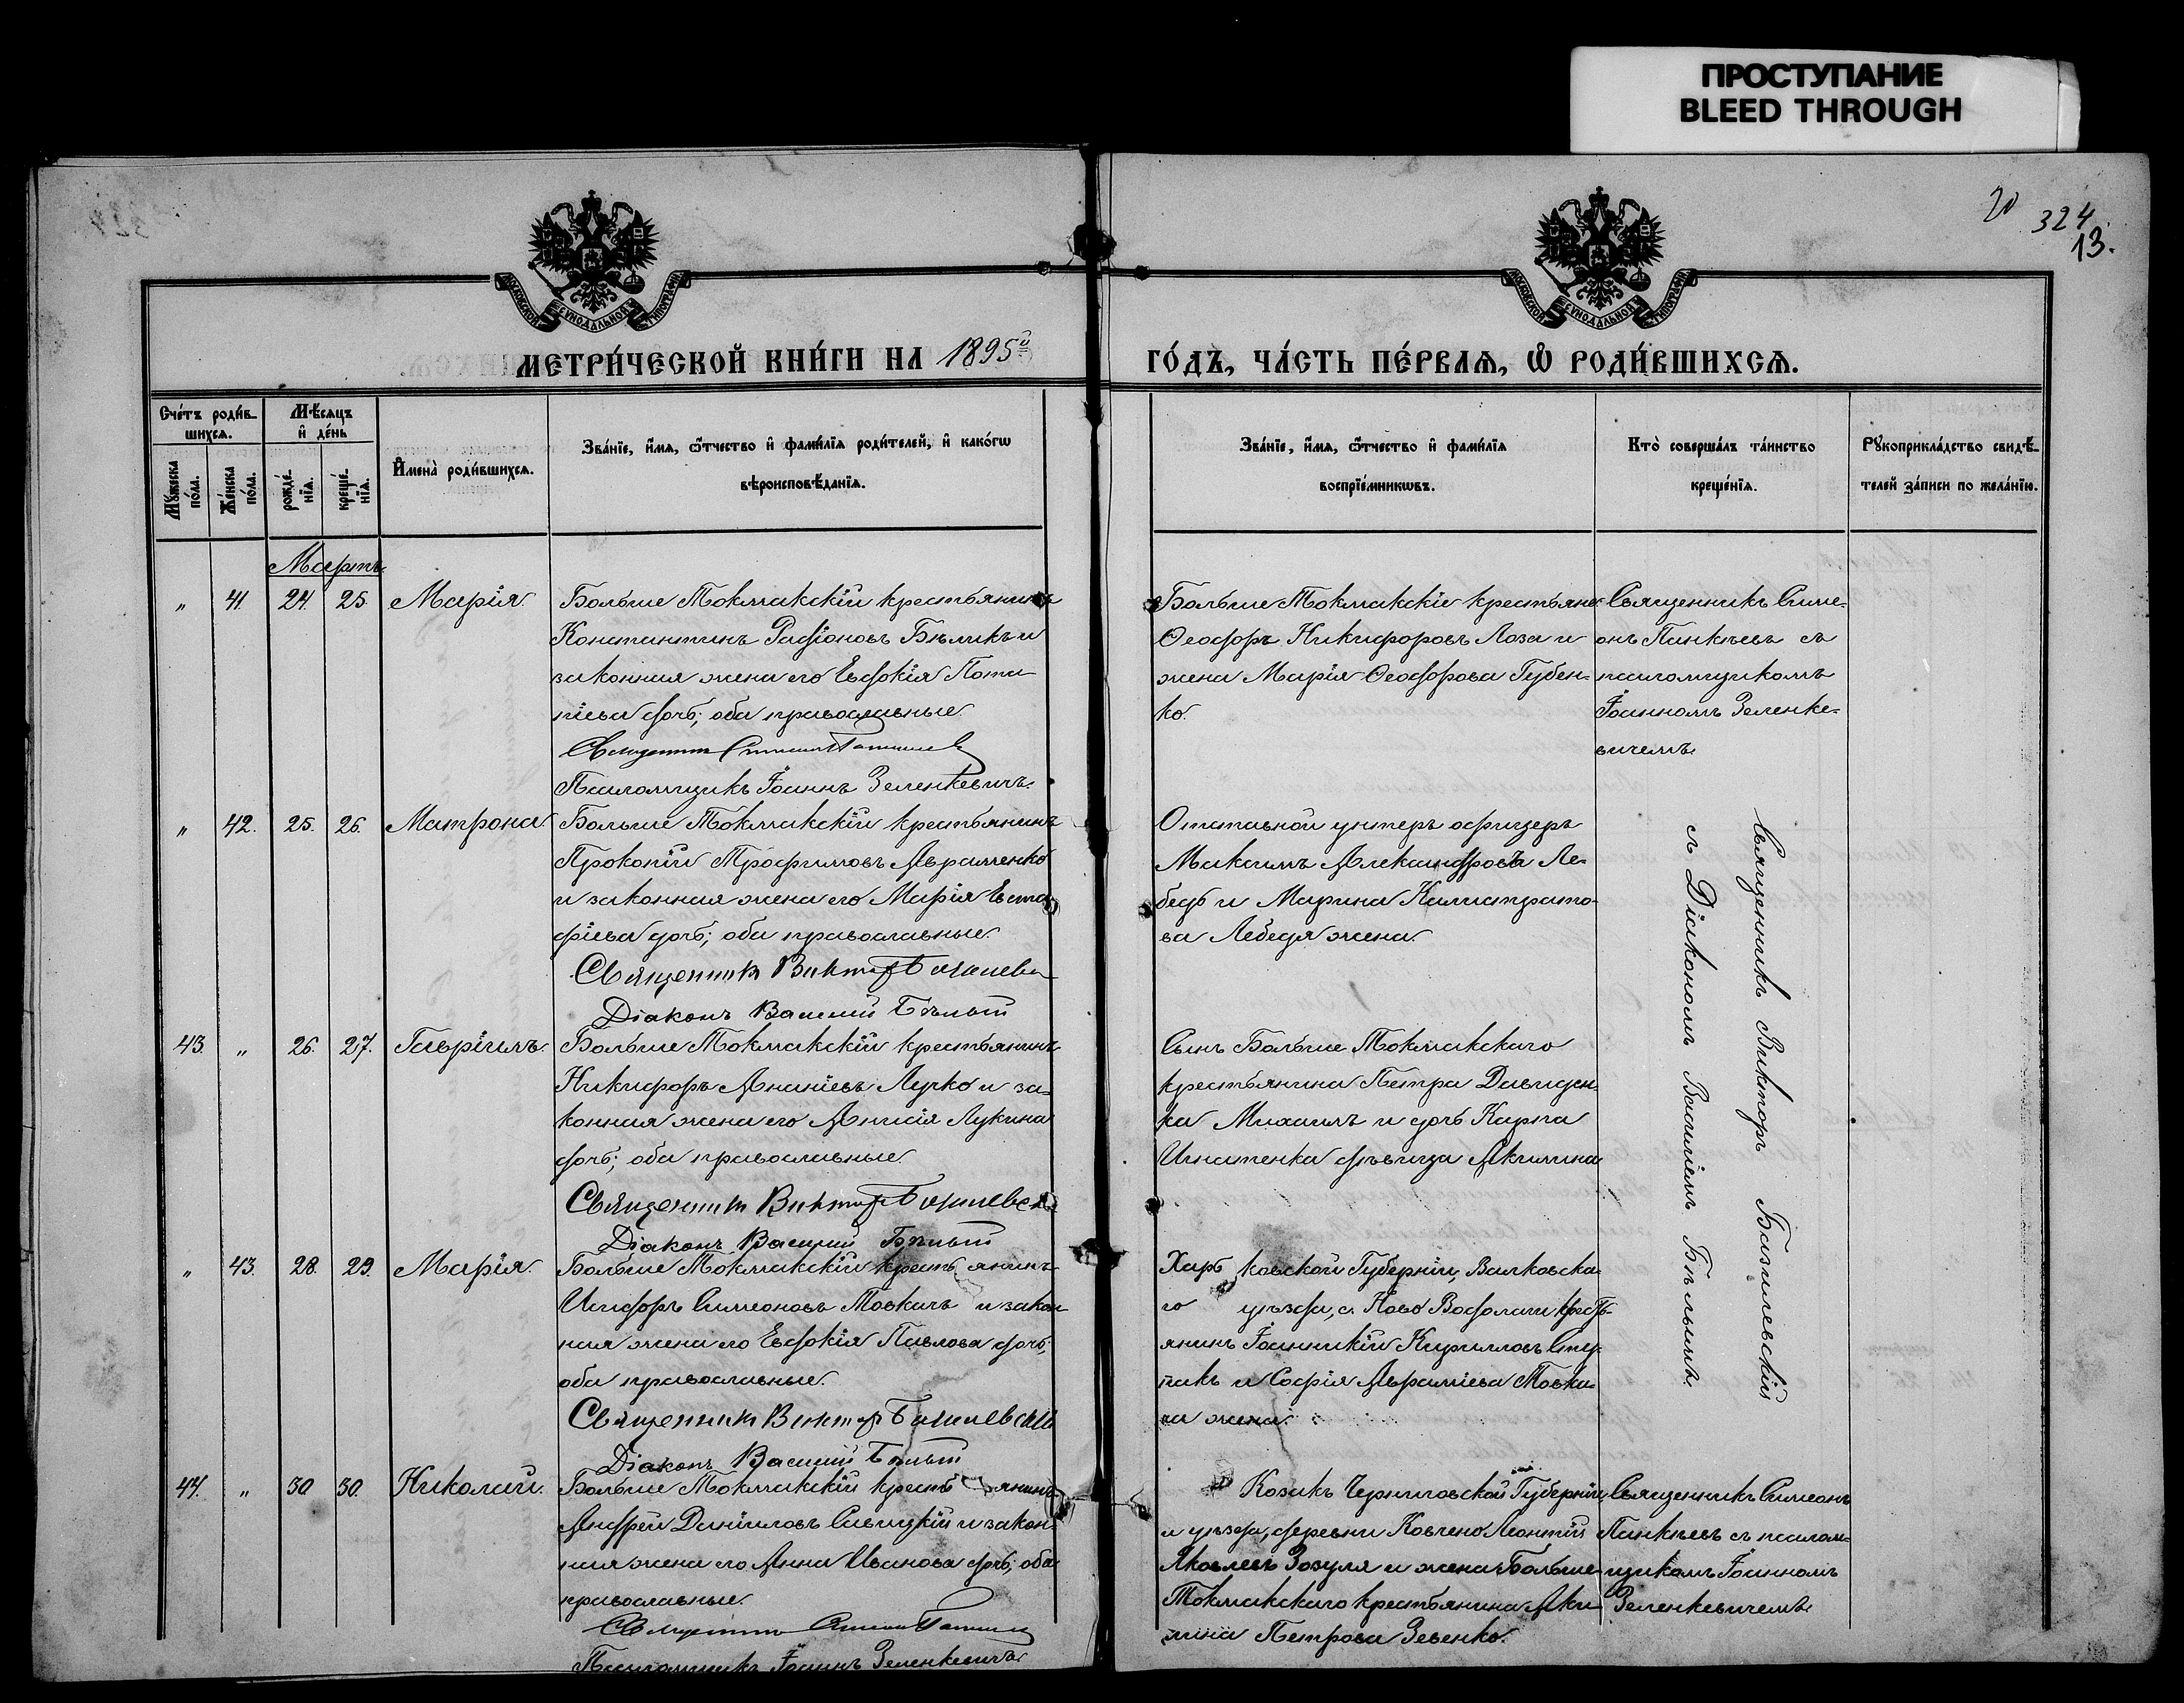 ПРОСТУПАНИЕ
BLEED THROUGH
20
324.
13.
МОСКОВСКОЙ СѴНОДАЛЬНОЙ ТИПОГРАФІИ
МОСКОВСКОЙ СѴНОДАЛЬНОЙ ТИПОГРАФІИ
МЕТРИ́ЧЕСКОЙ КНИ́ГИ НА 1895й
ГО́ДЪ, ЧА́СТЬ ПЕ́РВАѦ, Ѡ҆ РОДИ́ВШИХСѦ.
Сче́тъ роди́в-
шихсѧ.
Мѣ́сѧцъ
и҆ де́нь
Мꙋ́жеска
по́ла.
Же́нска
по́ла.
рожде́-
нїѧ.
креще́-
нїѧ.
И҆мена̀ роди́вшихсѧ.
Зва́нїе, и҆́мѧ, ѻ҆́тчество и҆ фами́лїѧ роди́телей, и҆ како́гѡ
вѣроисповѣ́данїѧ.
Зва́нїе, и҆́мѧ, ѻ҆́тчество и҆ фами́лїѧ
воспрїе́мникѡвъ.
Кто̀ соверша́лъ та́инство
креще́нїѧ.
Рꙋкоприкла́дство свидѣ́-
телей за́писи по жела́нїю.
Мартъ.
„ 41. 24. 25. Марія.
Больше Токмакскій крестьянинъ
Константинъ Радіоновъ Бѣликъ и
законная жена его Евдокія Пота-
піева дочь; оба православные.
Священникъ Симеонъ Панкѣевъ
Псаломщикъ Іоаннъ Зеленкевичъ.
Больше Токмакскіе крестьяне
Ѳеодоръ Никифоровъ Лоза и
жена Марія Ѳеодорова Губен-
ко.
Священникъ Симе-
онъ Панкѣевъ съ
псаломщикомъ
Іоанномъ Зеленке-
вичемъ.
„ 42. 25. 26. Матрона.
Больше Токмакскій крестьянинъ
Прокопій Трофимовъ Авраменко
и законная жена его Марія Евста-
фіева дочь; оба православные.
Священникъ Викторъ Базилевскій
Діаконъ Василій Бѣлый
Отставной унтеръ офицеръ
Максимъ Александровъ Ле-
бедь и Марина Калистрато-
ва Лебедя жена.
Священникъ Викторъ Базилевскій
съ Діакономъ Василіемъ Бѣлымъ.
43. „ 26. 27. Гавріилъ.
Больше Токмакскій крестьянинъ
Никифоръ Ананіевъ Лучко и за-
конная жена его Анисія Лукина
дочь; оба православные.
Священникъ Викторъ Базилевскій
Діаконъ Василій Бѣлый
Сынъ Больше Токмакскаго
крестьянина Петра Давиден-
ка Михаилъ и дочь Карпа
Игнатенка дѣвица Акилина
„ 43. 28. 29. Марія.
Больше Токмакскій крестьянинъ
Исидоръ Симеоновъ Товкачъ и закон-
ная жена его Евдокія Павлова дочь;
оба православные.
Священникъ Викторъ Базилевскій
Діаконъ Василій Бѣлый
Харьковской Губерніи, Валковска-
го уѣзда, с. Ново Водолаги крестъ-
янинъ Іоанникій Кирилловъ Сту-
пакъ и Софія Авраміева Товка-
ча жена.
44. „ 30. 30. Николай.
Больше Токмакскій крестьянинъ
Андрей Даніиловъ Савицкій и закон-
ная жена его Анна Иванова дочь; оба
православные.
Священникъ Симеонъ Панкѣевъ
Псаломщикъ Іоаннъ Зеленкевичъ.
Козакъ Черниговской Губерніи
и уѣзда, деревни Ковчено Леонтій
Яковлевъ Зозуля и жена Больше
Токмакскаго крестьянина Аки-
лина Петрова Зевенко.
Священникъ Симеонъ
Панкѣевъ съ псалом-
щикомъ Іоанномъ
Зеленкевичемъ.